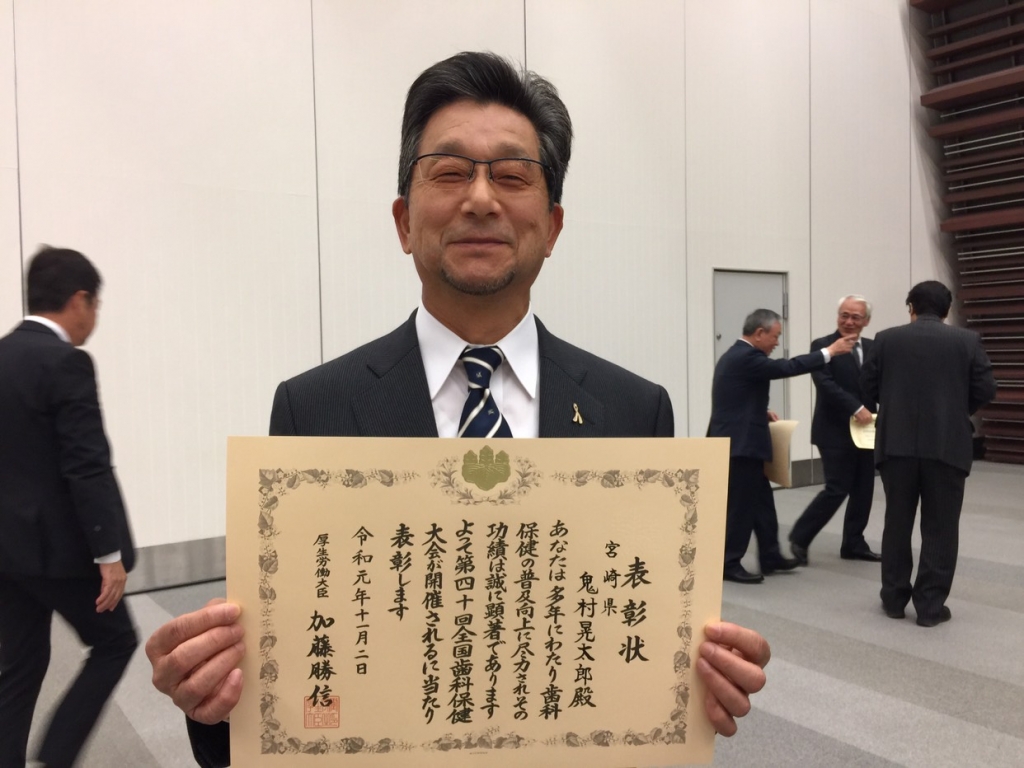 表彰状
宮崎県
鬼村晃太郎殿
あなたは多年にわたり歯科
保健の普及向上に尽力されその
功績は誠に顕著であります
よって第四十回全国歯科保健
大会が開催されるに当たり
表彰します
令和元年十一月二日
厚生労働大臣 加藤勝信